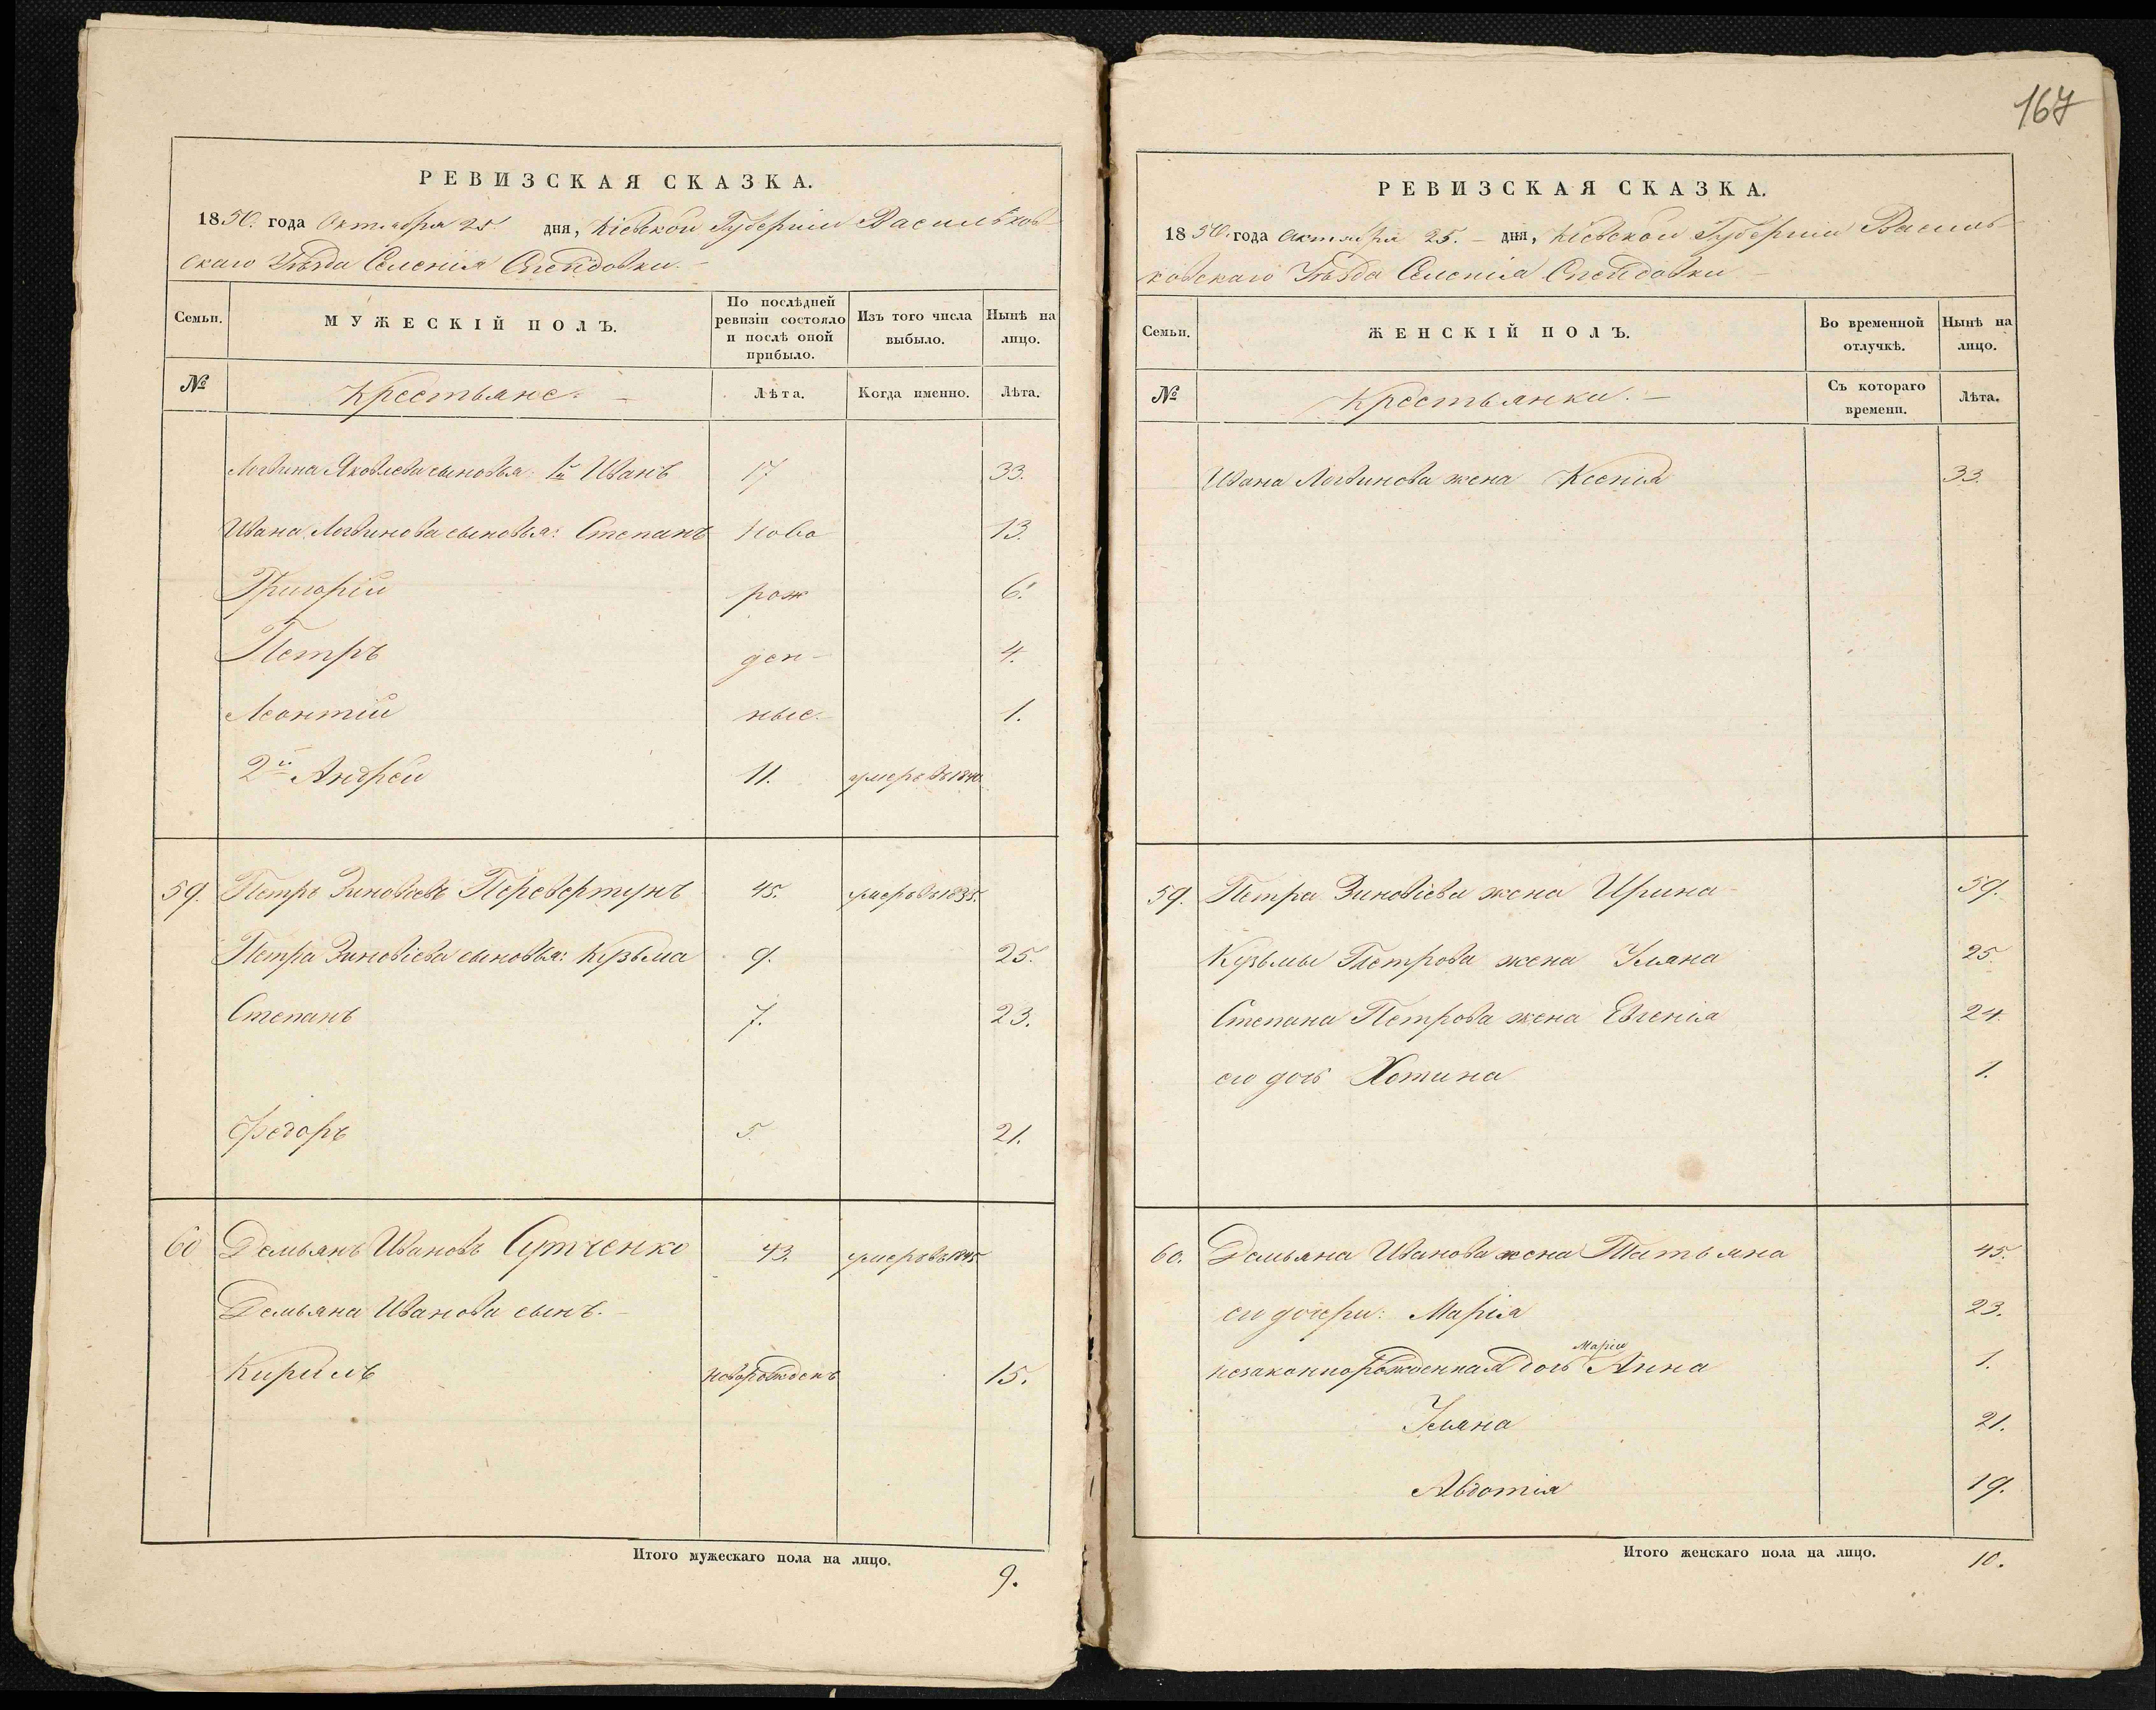 РЕВИЗСКАЯ СКАЗКА.
1850. года Октября 25 дня, Кіевской Губерніи Васильков-
скаго Уѣзда Селенія
Семьи.
МУЖЕСКІЙ ПОЛЪ.
По послѣдней ревизіи состояло и послѣ оной прибыло.
Изъ того числа выбыло.
Нынѣ на лицо.
№ Крестьяне. Лѣта. Когда именно. Лѣта.
Логвина Яковлева сыновья: 1й Иванъ 17. 33.
Ивана Логвинова сыновья: Степанъ ново 13.
Григорій рож 6.
Петръ ден- 4.
Леонтій ные. 1.
2й Андрей 11. умеръ въ 1840.
59. Петръ Зиновіевъ Перевертунъ 45. умеръ въ 1835.
Петра Зиновіева сыновья: Кузьма 9. 25.
Степанъ 7. 23.
Федоръ 5. 21.
60 Демьянъ Ивановъ 43. умеръ въ 1845.
Демьяна Иванова сынъ.
Кирилъ новорожденъ 15.
Итого мужескаго пола на лицо.
9.
167
РЕВИЗСКАЯ СКАЗКА.
1850. года Октября 25. дня, Кіевской Губерніи Василь-
ковскаго Уѣзда Селенія
Семьи.
ЖЕНСКІЙ ПОЛЪ.
Во временной отлучкѣ.
Нынѣ на лицо.
№ Крестьянки. Съ котораго времени. Лѣта.
Ивана Логвинова жена Ксенія 33.
59. Петра Зиновіева жена Ирина 59.
Кузьмы Петрова жена Уляна 25.
Степана Петрова жена Евгенія 24.
его дочь Хотина 1.
60. Демьяна Иванова жена Татьяна 45.
его дочери: Марія 23.
Маріи
незаконнорожденная дочь Анна 1.
Уляна 21.
Авдотія 19.
Итого женскаго пола на лицо. 10.